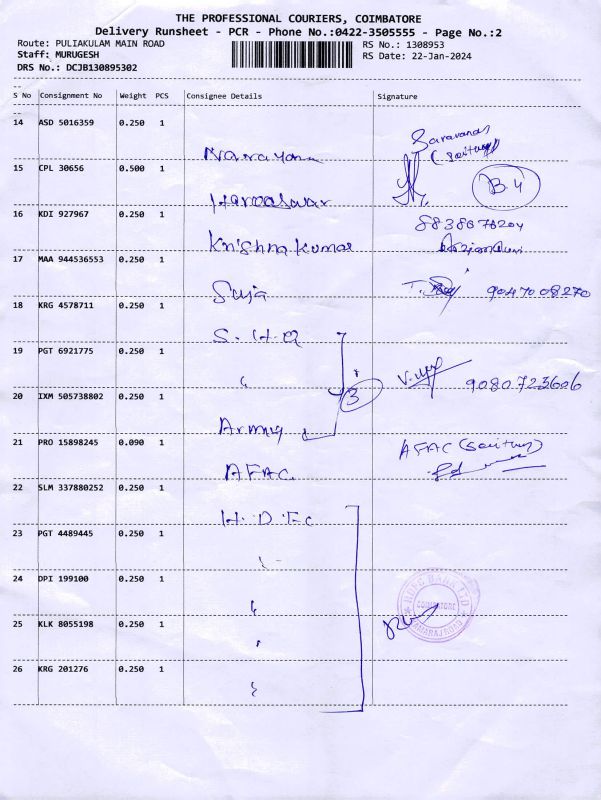 THE PROFESSIONAL COURIERS, COIMBATORE
Delivery Runsheet - PCR - Phone No.:0422-3505555 - Page No.:2
Route: PULIAKULAM MAIN ROAD
RS No.: 1308953
Staff: MURUGESH
RS Date: 22-Jan-2024
DRS No.: DCJB130895302
S No Consignment No Weight PCS Consignee Details Signature
14 ASD 5016359 0.250 1 Narayana Saravanan
15 CPL 30656 0.500 1 Hareeswar B.4
16 KDI 927967 0.250 1 Krishna Kumar 8838076204
17 MAA 944536553 0.250 1 Suja 9047008270
18 KRG 4578711 0.250 1 S.H.Q
19 PGT 6921775 0.250 1 " 3 9080723606
20 IXM 505738802 0.250 1 Army
21 PRO 15898245 0.090 1 AFAC. AFAC
22 SLM 337880252 0.250 1 H.D.Fc
23 PGT 4489445 0.250 1 "
24 DPI 199100 0.250 1 " HDFC BANK LTD COIMBATORE
25 KLK 8055198 0.250 1 "
26 KRG 201276 0.250 1 "